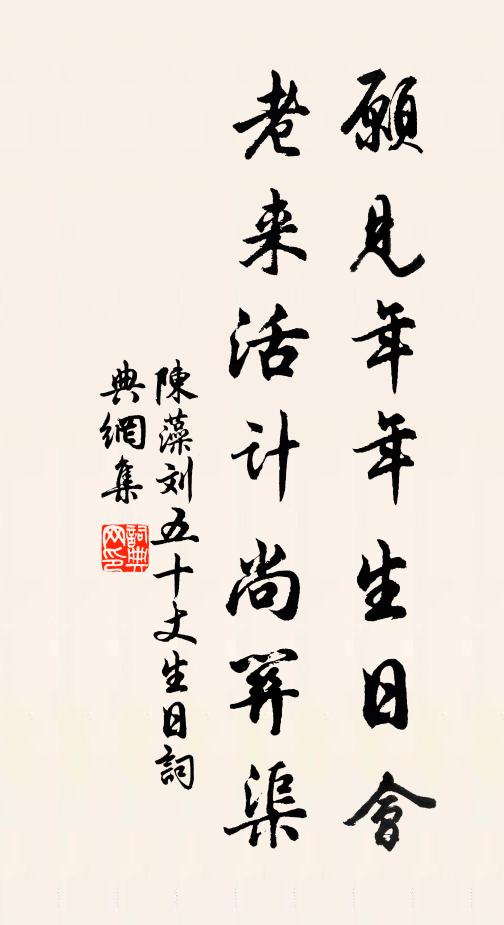 願見年年生日會
老来活计尚羿渠
陳藻刘五十丈生日詞
典網集
詞典網印